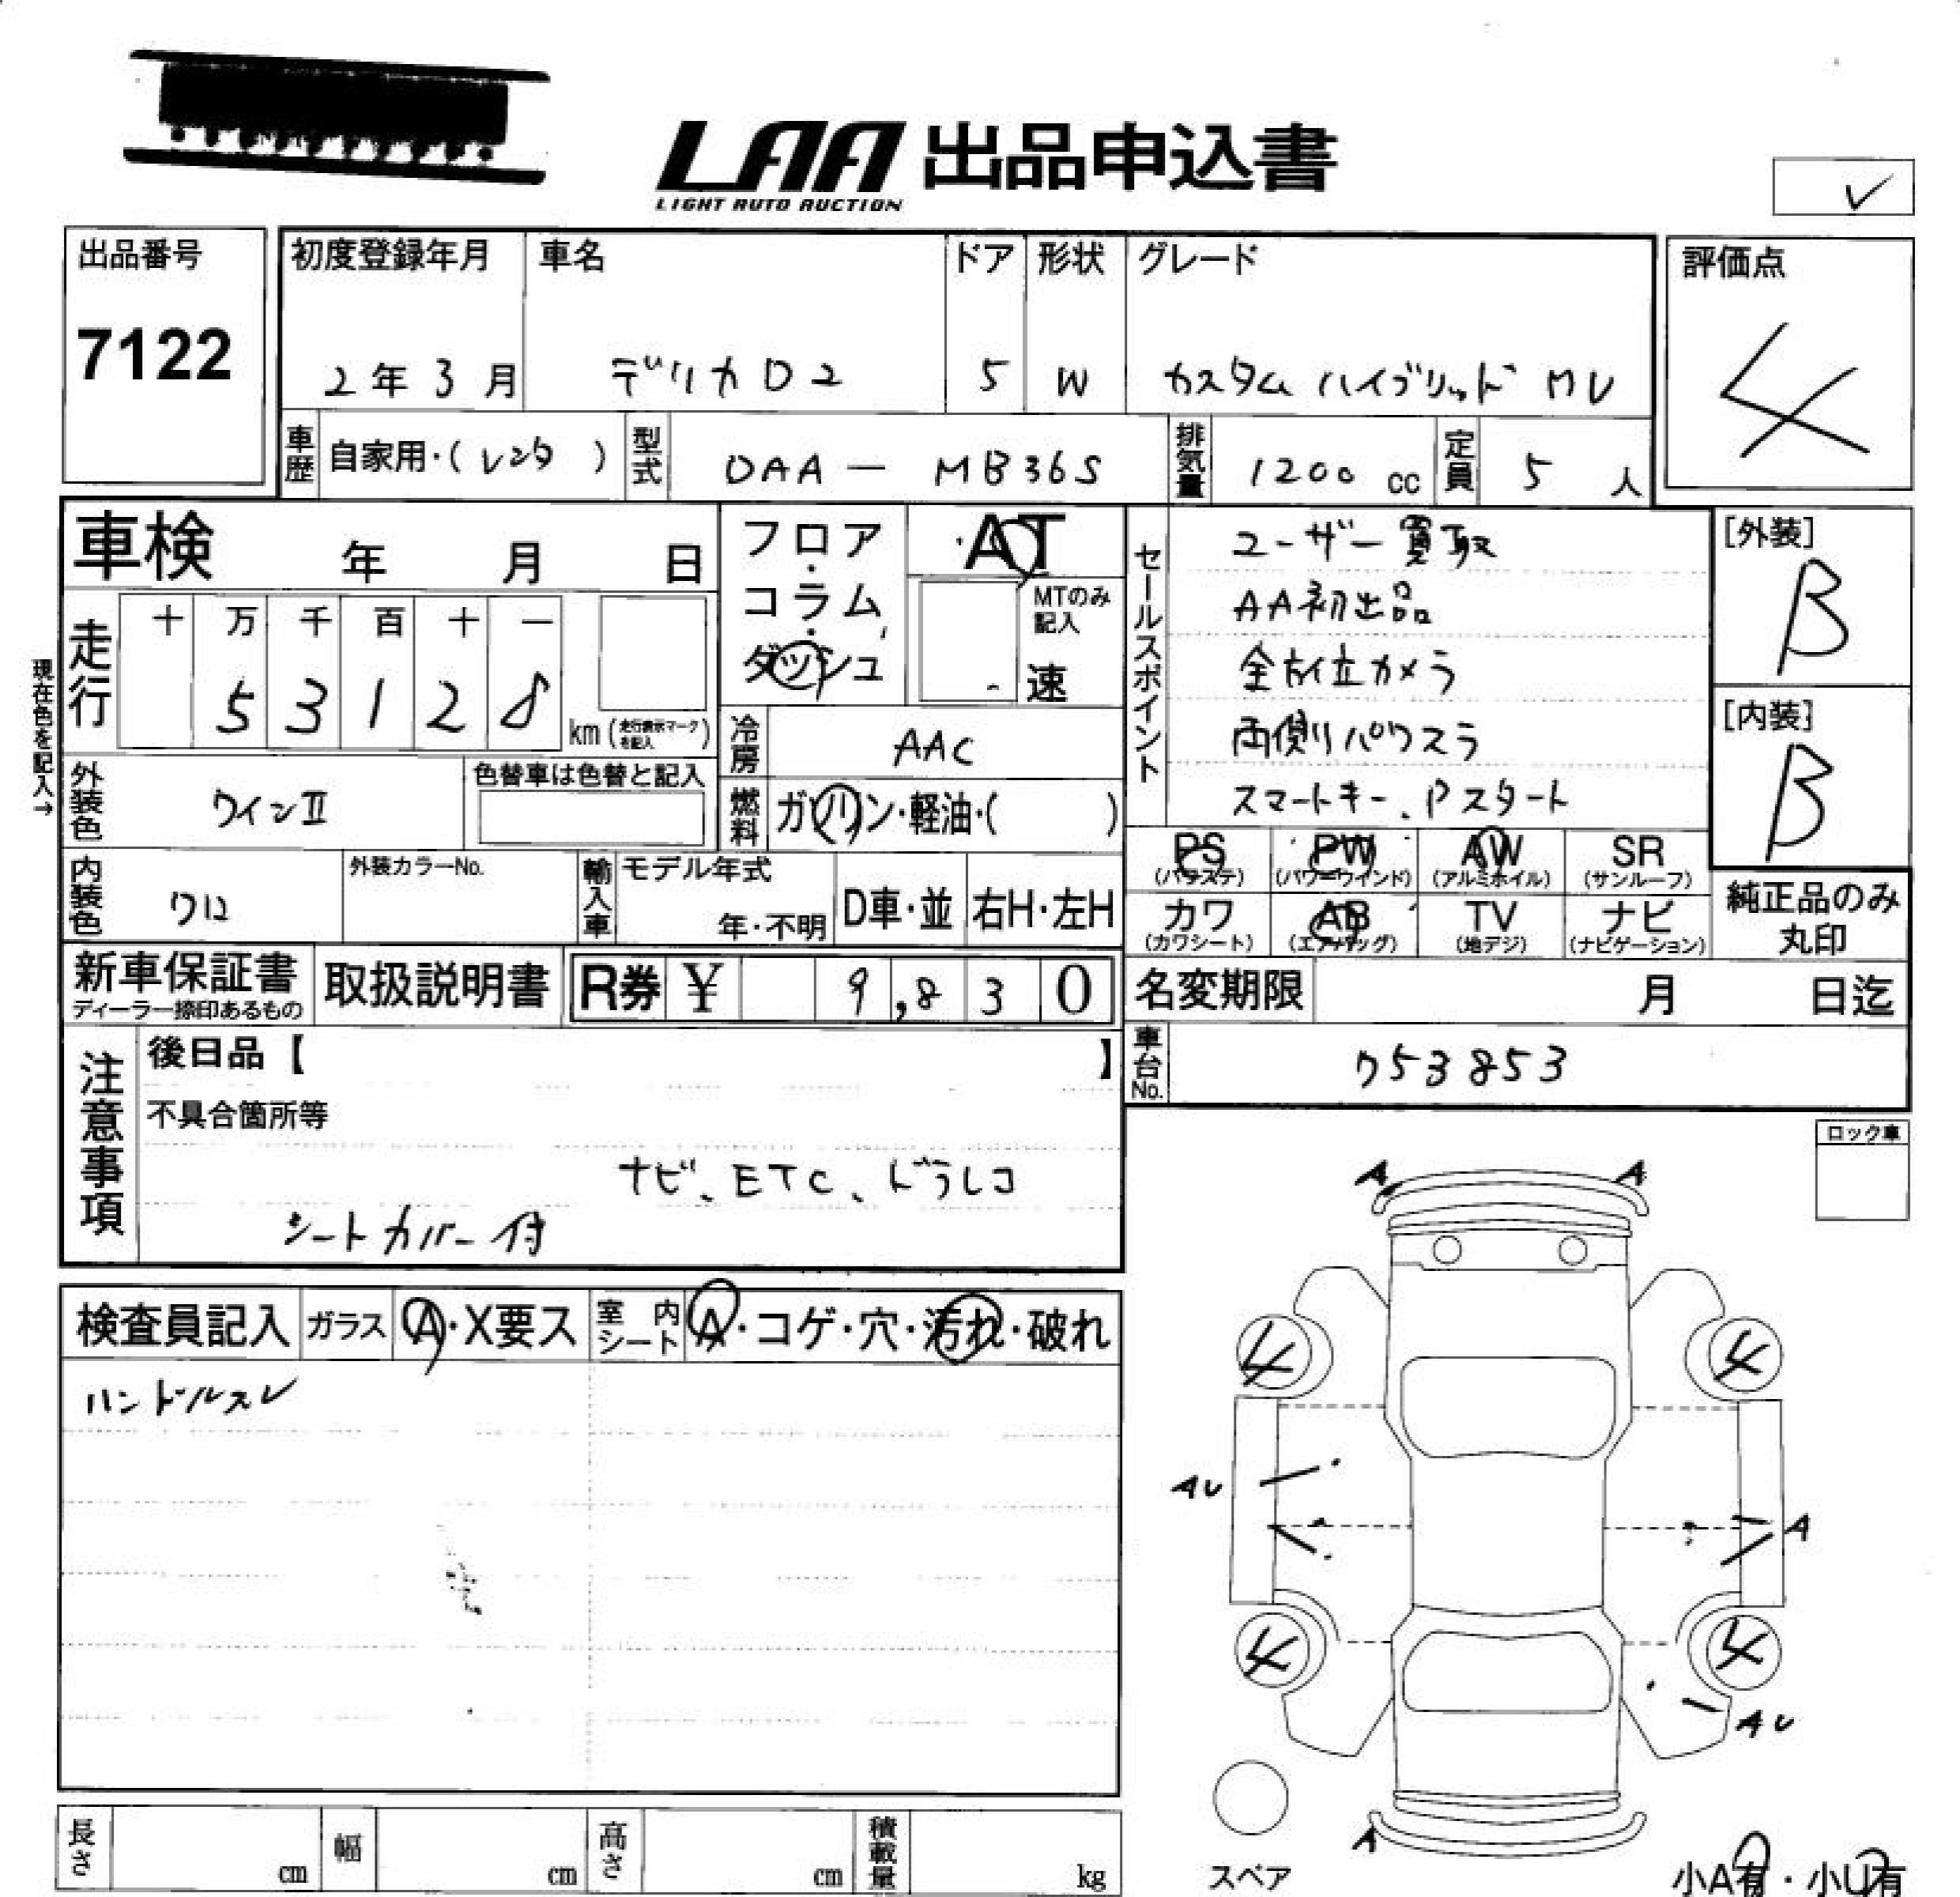 LAA 出品申込書
LIGHT AUTO AUCTION
出品番号
7122
初度登録年月
2年3月
車名
デリカD2
ドア
5
形状
W
グレード
カスタムハイブリッドMV
評価点
4
車歴
自家用・(レンタ)
型式
DAA-MB36S
排気量
1200cc
定員
5人
車検 年 月 日
現在色を記入→
走行
十 万 千 百 十 一
5 3 1 2 8
km(走行表示マークを記入)
フロア・コラム・ダッシュ
AT
MTのみ記入
速
冷房
AAC
燃料
ガソリン・軽油・( )
外装色
ワインII
色替車は色替と記入
内装色
クロ
外装カラーNo.
輸入車
モデル年式
年・不明
D車・並
右H・左H
セールスポイント
ユーザー買取
AA初出品
全方位カメラ
両側パワスラ
スマートキー、Pスタート
[外装]
B
[内装]
B
PS
(パワステ)
PW
(パワーウインド)
AW
(アルミホイル)
SR
(サンルーフ)
カワ
(カワシート)
AB
(エアバッグ)
TV
(地デジ)
ナビ
(ナビゲーション)
純正品のみ
丸印
新車保証書
ディーラー捺印あるもの
取扱説明書
R券 ¥ 9,830
名変期限 月 日迄
車台No.
753853
注意事項
後日品【 】
不具合箇所等
ナビ、ETC、ドラレコ
シートカバー付
ロック車
検査員記入
ガラス
A・X要ス
室内シート
A・コゲ・穴・汚れ・破れ
ハンドルスレ
A A
4 4
AU
A
4 4
AU
A
スペア
小A有・小U有
長さ cm
幅 cm
高さ cm
積載量 kg